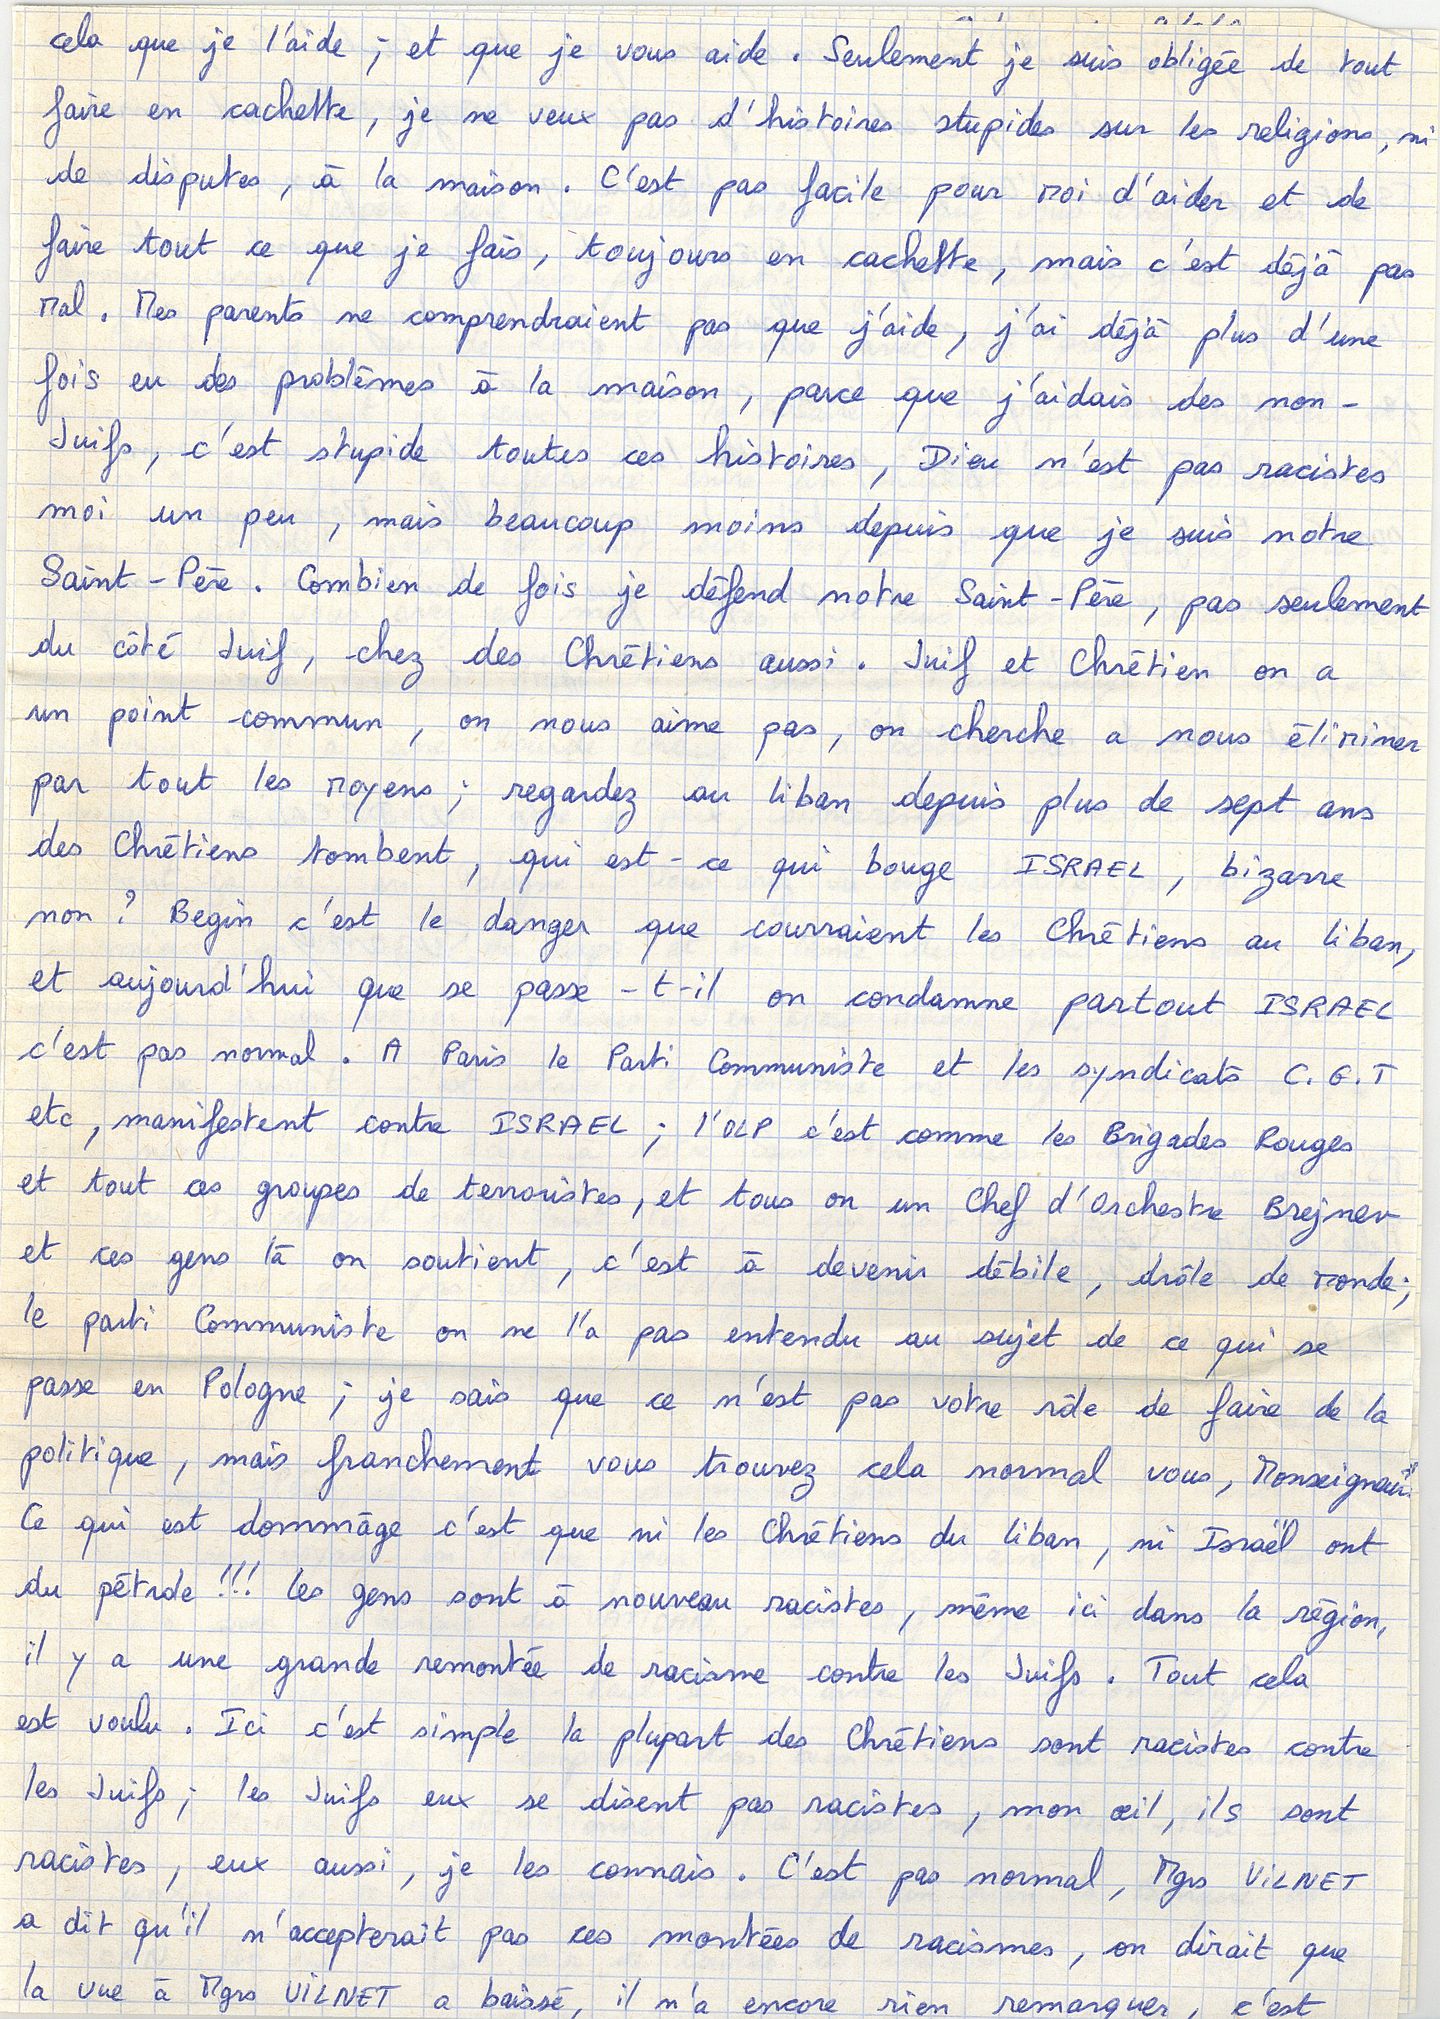 cela que je l'aide ; et que je vous aide. Seulement je suis obligée de tout
faire en cachette, je ne veux pas d'histoires stupides sur les religions, ni
de disputes, à la maison. C'est pas facile pour moi d'aider et de
faire tout ce que je fais, toujours en cachette, mais c'est déjà pas
mal. Mes parents ne comprendraient pas que j'aide, j'ai déjà plus d'une
fois eu des problèmes à la maison, parce que j'aidais des non-
Juifs, c'est stupide toutes ces histoires, Dieu n'est pas racistes
moi un peu, mais beaucoup moins depuis que je suis notre
Saint-Père. Combien de fois je défend notre Saint-Père, pas seulement
du côté Juif, chez des Chrétiens aussi. Juif et Chrétien on a
un point commun, on nous aime pas, on cherche a nous éliminer
par tout les moyens ; regardez au liban depuis plus de sept ans
des Chrétiens tombent, qui est-ce qui bouge ISRAEL, bizarre
non ? Begin c'est le danger que courraient les Chrétiens au liban,
et aujourd'hui que se passe-t-il on condamne partout ISRAEL
c'est pas normal. A Paris le Parti Communiste et les syndicats C.G.T
etc, manifestent contre ISRAEL ; l'OLP c'est comme les Brigades Rouges
et tout ces groupes de terroristes, et tous on un Chef d'Orchestre Brejnev
et ces gens là on soutient, c'est à devenir débile, drôle de monde ;
le parti Communiste on ne l'a pas entendu au sujet de ce qui se
passe en Pologne ; je sais que ce n'est pas votre rôle de faire de la
politique, mais franchement vous trouvez cela normal vous, Monseigneur
Ce qui est dommâge c'est que ni les Chrétiens du liban, ni Israël ont
du pétrole !!! Les gens sont à nouveau racistes, même ici dans la région,
il y a une grande remontée de racisme contre les Juifs. Tout cela
est voulu. Ici c'est simple la plupart des Chrétiens sont racistes contre
les Juifs ; les Juifs eux se disent pas racistes, mon œil, ils sont
racistes, eux aussi, je les connais. C'est pas normal, Mgrs VILNET
a dit qu'il n'accepterait pas ces montées de racismes, on dirait que
la vue à Mgrs VILNET a baissé, il n'a encore rien remarquer, c'est